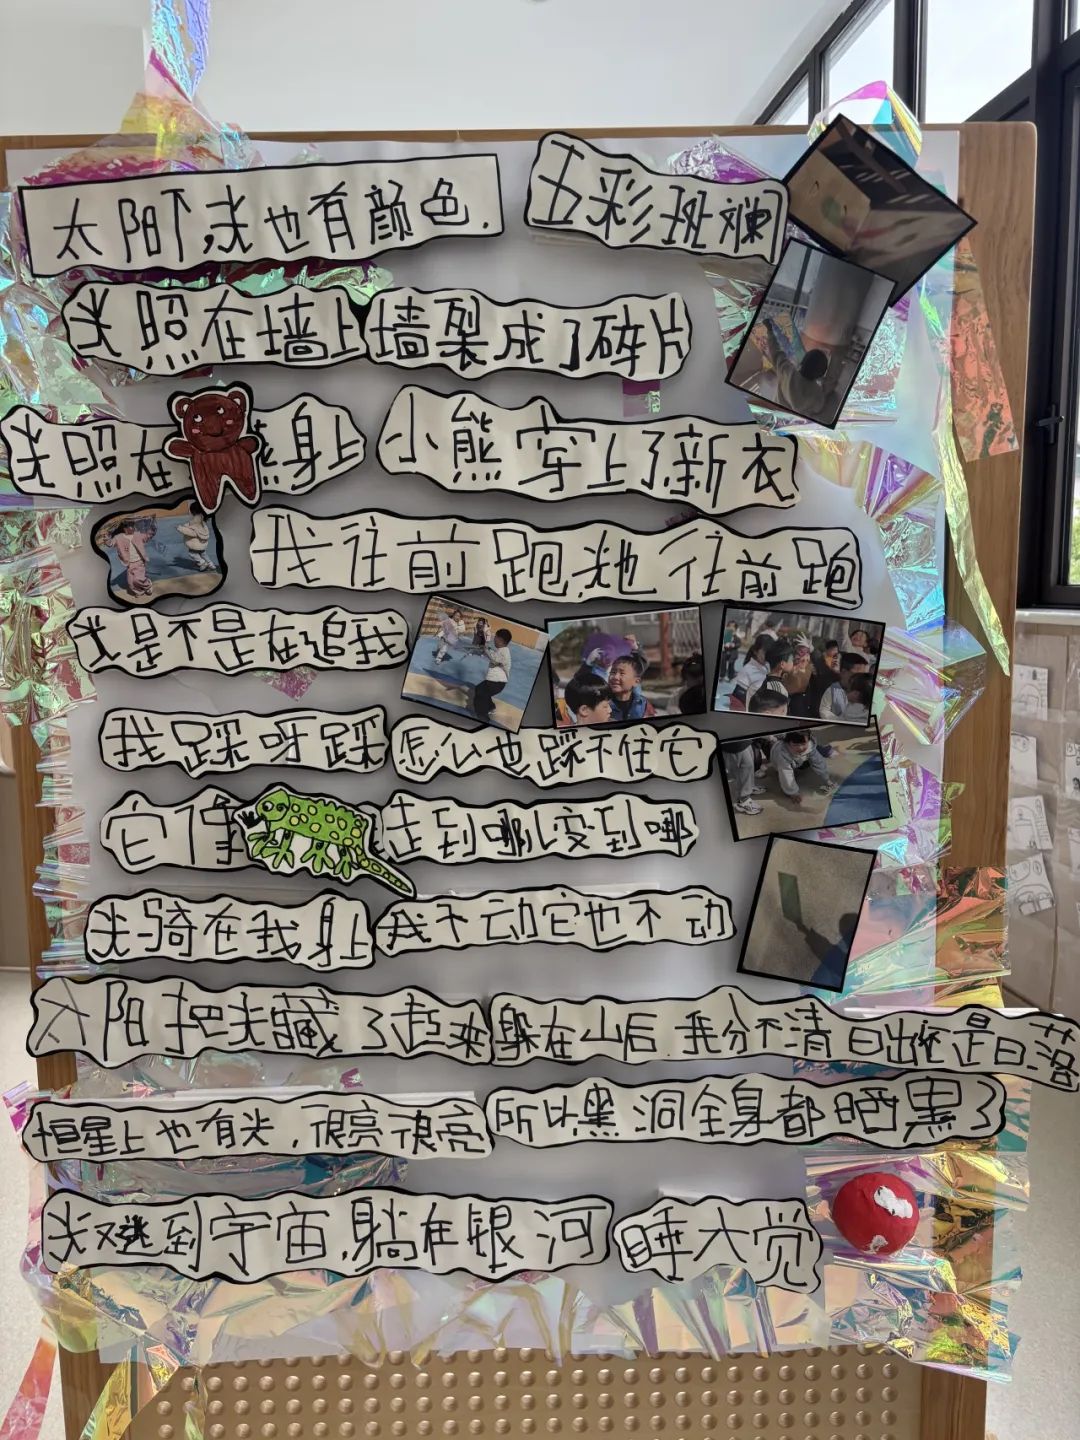 太阳下,光也有颜色. 五彩斑斓
光照在墙上 墙裂成了碎片
光照在熊身上 小熊穿上了新衣
我往前跑,光也往前跑
光是不是在追我
我踩呀踩 怎么也踩不住它
它像 走到哪儿变到哪
光骑在我身上 我不动它也不动
太阳把光藏了起来 躲在山后.我分不清日出还是日落
恒星上也有光,很亮很亮 所以黑洞全身都晒黑了
光又逃到宇宙,躺在银河 睡大觉